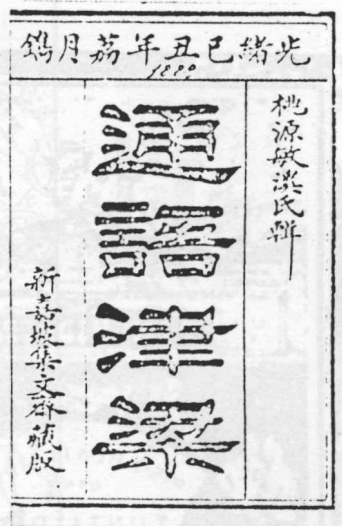 光緒己丑年荔月鐫
1889
桃源敏淇氏輯
通語津梁
新嘉坡集文齋藏版